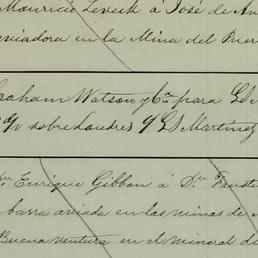 Mauricio Leveck á José de Au
aviadora en la Mina del Buen
raham Watson y Cia para L. D
sobre Londres
Enrique Gibbon á Dn Fauste
barra aviada en las minas de
Buena Ventura en el Mineral de